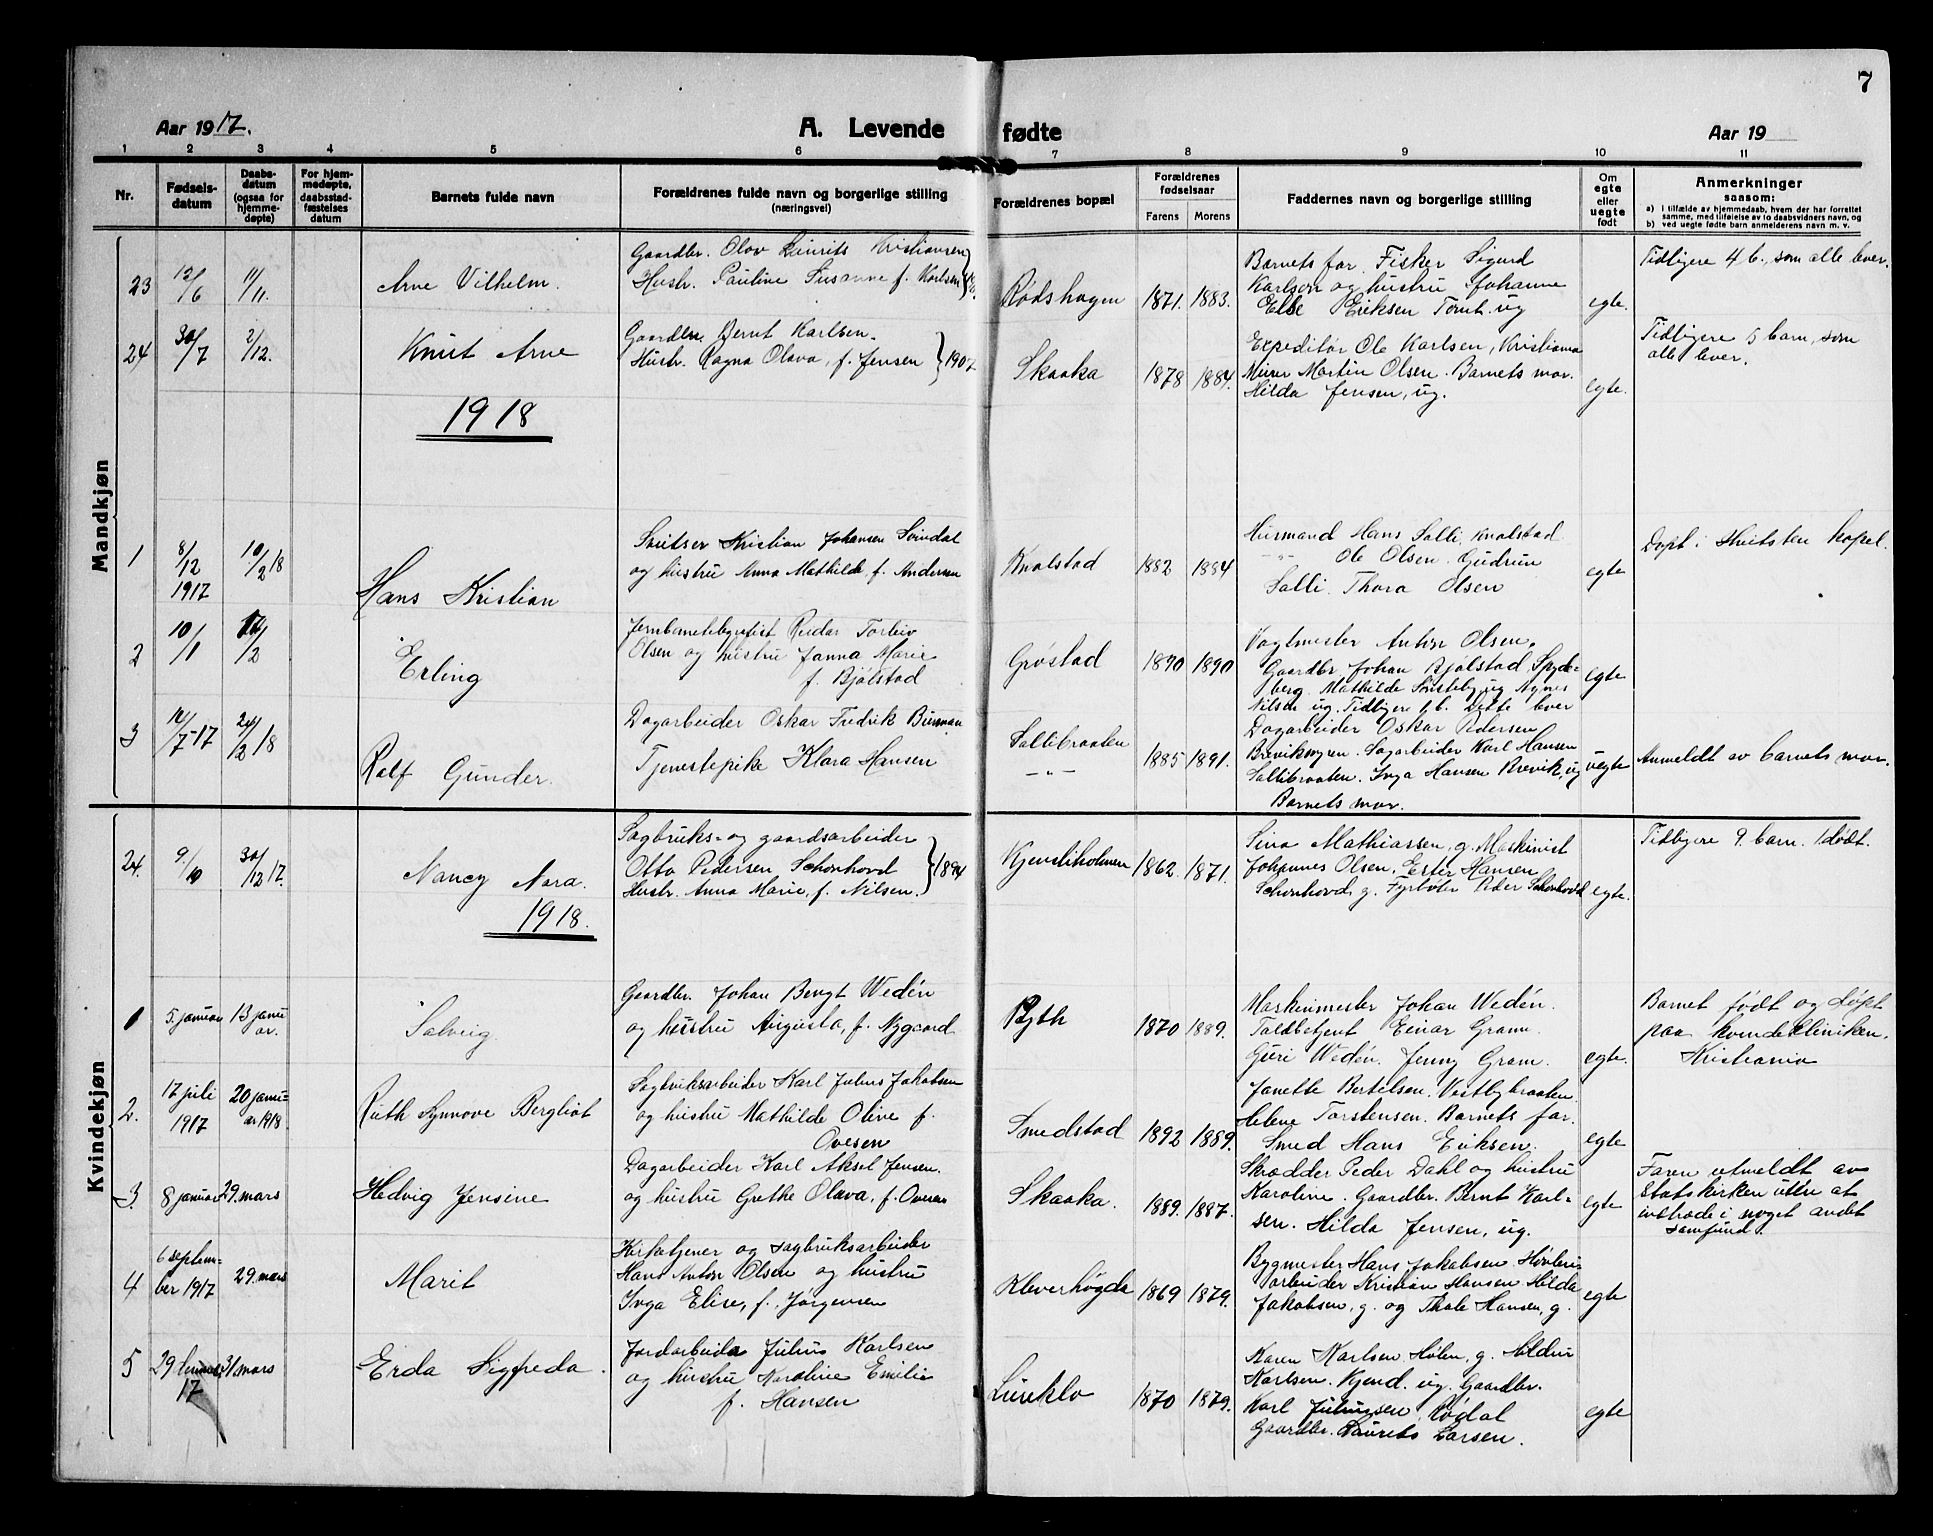 7
Aar 1917.
A. Levende fødte
Aar 19
1 2 3 4 5 6 7 8 9 10 11
Nr.
Fødsels-
datum
Daabs-
datum
(ogsaa for
hjemme-
døpte)
For hjem-
medøpte,
daabsstad-
fæstelses
datum
Barnets fulde navn
Forældrenes fulde navn og borgerlige stilling
(næringsvei)
Forældrenes bopæl
Forældrenes
fødselsaar
Farens Morens
Faddernes navn og borgerlige stilling
Om
egte
eller
uegte
født
Anmerkninger
saasom:
a) i tilfælde av hjemmedaab, hvem der har forrettet
samme, med tilføielse av to daabsvidners navn, og
b) ved uegte fødte barn anmelderens navn m. v.
Mandkjøn
23
12/6
11/11.
Arne Vilhelm.
Gaardbr. Olav Laurits Kristiansen
Hustr. Pauline Susanne f. Karlsen
Rødshagen
1871. 1883.
Barnets far. Fisker Sigurd
Karlsen og hustru Johanne
Else Eriksen Tomt. ug
egte.
Tidligere 4 b., som alle lever.
24
30/7
2/12.
Knut Arne
Gaardbr. Bernt Karlsen.
Hustr. Ragna Olava, f. Jensen } 1907.
Skaaka
1878 1884.
Expeditør Ole Karlsen, Kristiania
Murer Martin Olsen. Barnets mor.
Hilda Jensen, ug.
egte.
Tidligere 5 barn, som
alle lever.
1918
1
8/12
1917
10/2 18
Hans Kristian
Kristian Johansen Svindal
og hustru Anna Mathilde, f. Andersen
Knalstad
1882 1884
Husmand Hans Salli, Knalstad
-"- Ole Olsen. Gudrun
Salli. Thora Olsen
egte
Døpt i kapel.
2
10/1
17/2
Erling
Jernbanetelegrafist Reidar Torleiv
Olsen og hustru Janna Marie
f. Bjølstad
Grøstad
1890 1890
Vagtmester Anton Olsen.
Gaardbr Johan Bjølstad Spyde-
berg. Mathilde ug Agnes
Nilsen ug. Tidligere 1 b. Dette lever
egte
3
12/7-17
24/2 18
Ralf Gunder.
Dagarbeider Oskar Fredrik Burman
Tjenestepike Klara Hansen
Sallibraaten
-"-
1885 1891.
Dagarbeider Oskar Pedersen
Breviksveen. Sagarbeider Karl Hansen
Sallibraaten. Inga Hansen Brevik, ug
Barnets mor.
uegte
Anmeldt av barnets mor.
Kvindekjøn
24.
9./10
30/12 17.
Nancy Nora.
Sagbruks- og gaardsarbeider
Otto Pedersen Schønhovd
Hustr. Anna Marie, f. Nilsen. } 1894
Kjensliholmen
1862. 1871.
Sina Mathiassen, g. Maskinist
Johannes Olsen, Ester Hansen
Schønhovd, g. Fyrbøter Peder Schønhovd
egte.
Tidligere 9. barn. 1 dødt.
1918.
1
5. januar
13 janu-
ar.
Solveig.
Gaardbr. Johan Bengt Wedén
og hustru Augusta, f. Nygaard
Ryth
1870 1889.
Maskinmester Johan Wedén.
Toldbetjent Einar Gram.
Guri Wedén. Jenny Gram.
egte.
Barnet født og døpt
paa kvindekliniken.
Kristiania
2.
17 juli
1917
20 janu-
ar 1918
Ruth Synnøve Bergliot
Sagbruksarbeider Karl Julius Jakobsen
og hustru Mathilde Olive f.
Ovesen
Smedstad
1892 1889.
Janette Bertelsen. Vestbybraaten.
Helene Torstensen. Barnets far.
Smed Hans Eriksen.
egte
3.
8 januar
29. mars
Hedvig Jensine
Dagarbeider Karl Aksel Jensen.
og hustru Grethe Olava, f. Ovesen
Skaaka.
1889. 1887.
Skrædder Peder Dahl og hustru
Karoline. Gaardbr. Bernt Karl-
sen. Hilda Jensen, ug.
egte
Faren utmeldt av
statskirken uten at
indtræde i noget andet
samfund.
4
6 septem-
ber 1917
29. mars
Marit
Kirketjener og sagbruksarbeider
Hans Anton Olsen og hustru
Inga Elise, f. Jørgensen
Kleverhøgda
1869 1879.
Bygmester Hans Jakobsen. Høvleri-
arbeider Kristian Hansen. Hilda
Jakobsen, g. og Thale Hansen, g.
egte
5
29
17
31. mars
Erda Sigfreda.
Jordarbeider Julius Karlsen
og hustru Karoline Emilie
f. Hansen
Lureklo
1870 1879.
Karen Karlsen Hølen, g. Haldur
Karlsen. Kjend. ug. Gaardbr.
Karl Juliussen, Rødal
Gaardbr. Laurits Larsen.
egte